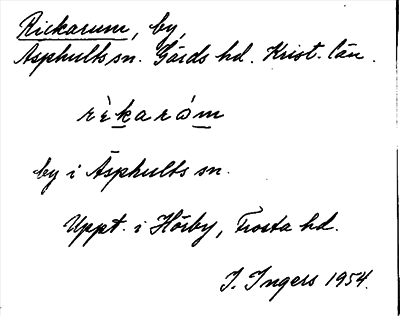 Rickarum, by,
Äsphults sn. Gärds hd. Krist. län.
rèkarám
by i Äsphults sn.
Uppt. i Hörby, Frosta hd.
I. Ingers 1954.